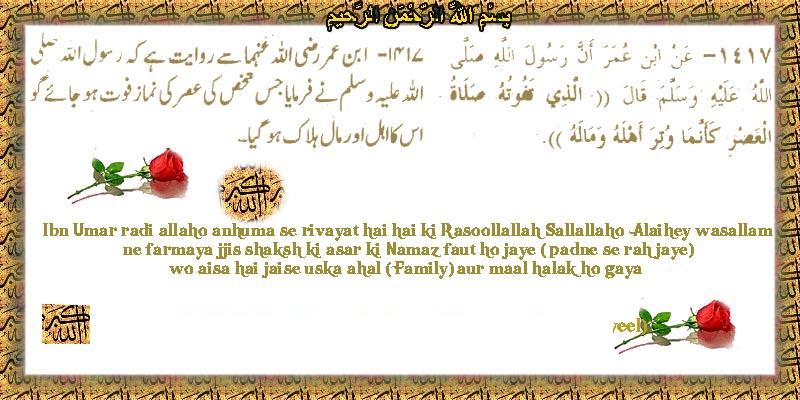 بِسْمِ اللّٰهِ الرَّحْمٰنِ الرَّحِيْمِ
١٤١٧- عَنْ ابْنِ عُمَرَ أَنَّ رَسُولَ اللَّهِ صَلَّى
اللَّهُ عَلَيْهِ وَسَلَّمَ قَالَ (( الَّذِي تَفُوتُهُ صَلَاةُ
الْعَصْرِ كَأَنَّمَا وُتِرَ أَهْلَهُ وَمَالَهُ )).
۱۴۱۷- ابن عمر رضی اللہ عنہما سے روایت ہے کہ رسول اللہ صلی
اللہ علیہ وسلم نے فرمایا جس شخص کی عصر کی نماز فوت ہو جائے گو
اس کا اہل اور مال ہلاک ہو گیا۔
الله اكبر
Ibn Umar radi allaho anhuma se rivayat hai hai ki Rasoollallah Sallallaho Alaihey wasallam
ne farmaya jjis shaksh ki asar ki Namaz faut ho jaye (padne se rah jaye)
wo aisa hai jaise uska ahal (Family) aur maal halak ho gaya
الله اكبر